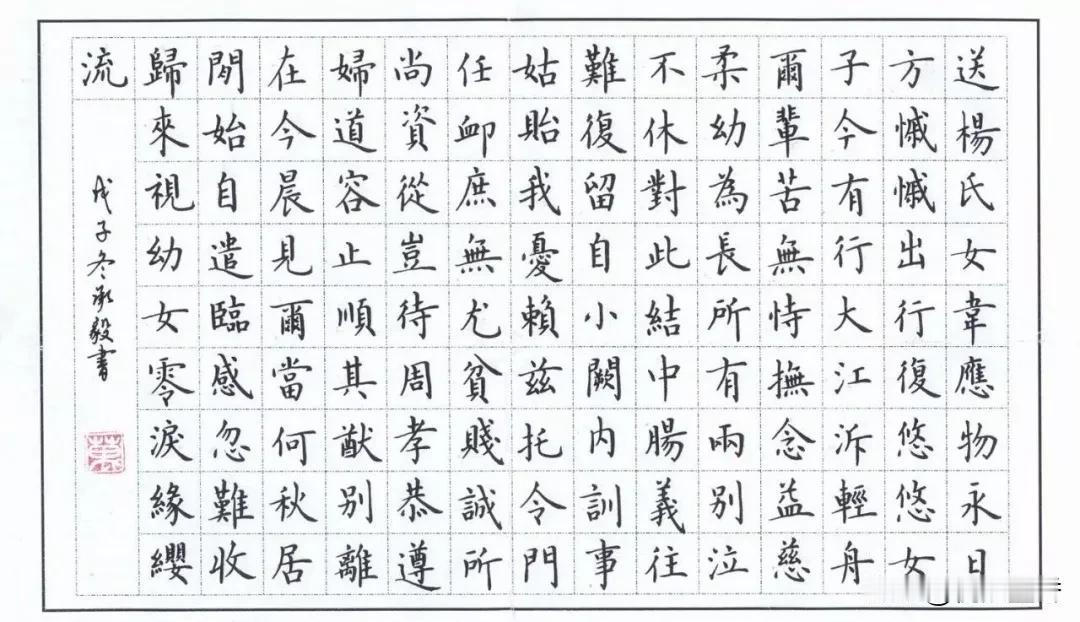 送楊氏女韋應物永日
方慽慽出行復悠悠女
子今有行大江泝輕舟
爾輩苦無恃撫念益慈
柔幼為長所有兩別泣
不休對此結中腸義往
難復留自小闕內訓事
姑貽我憂賴茲托令門
任卹庶無尤貧賤誠所
尚資從豈待周孝恭遵
婦道容止順其猷別離
在今晨見爾當何秋居
閒始自遣臨感忽難收
歸來視幼女零淚緣纓
流
戊子冬承毅書